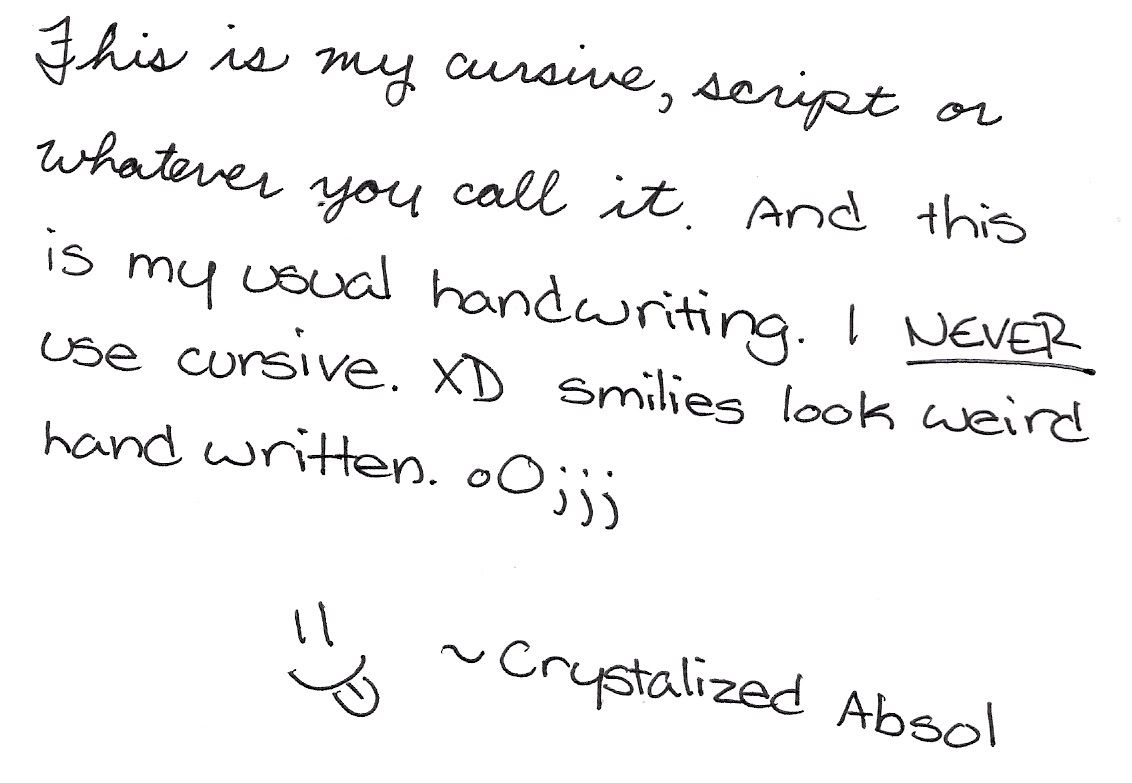 This is my cursive, script or
whatever you call it. And this
is my usual handwriting. I NEVER
use cursive. XD smilies look weird
hand written. oO;;;
~Crystalized Absol